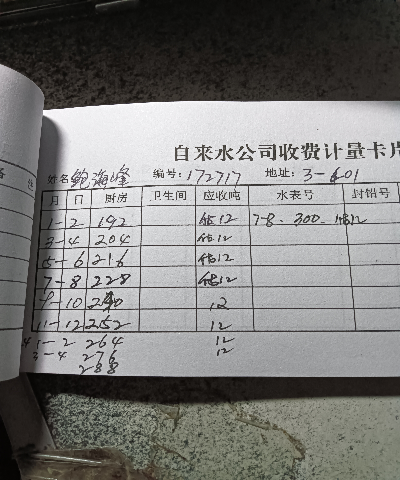 自来水公司收费计量卡片
姓名 鲍海峰 编号:172717 地址:3-601
月 日 厨房 卫生间 应收吨 水表号 封铅号
1-2 192 估12 7-8. 300. 估12
3-4 204 估12
5-6 216 估12
7-8 228 估12
9-10 240 12
11-12 252 12
1-2 264 12
3-4 276 12
288